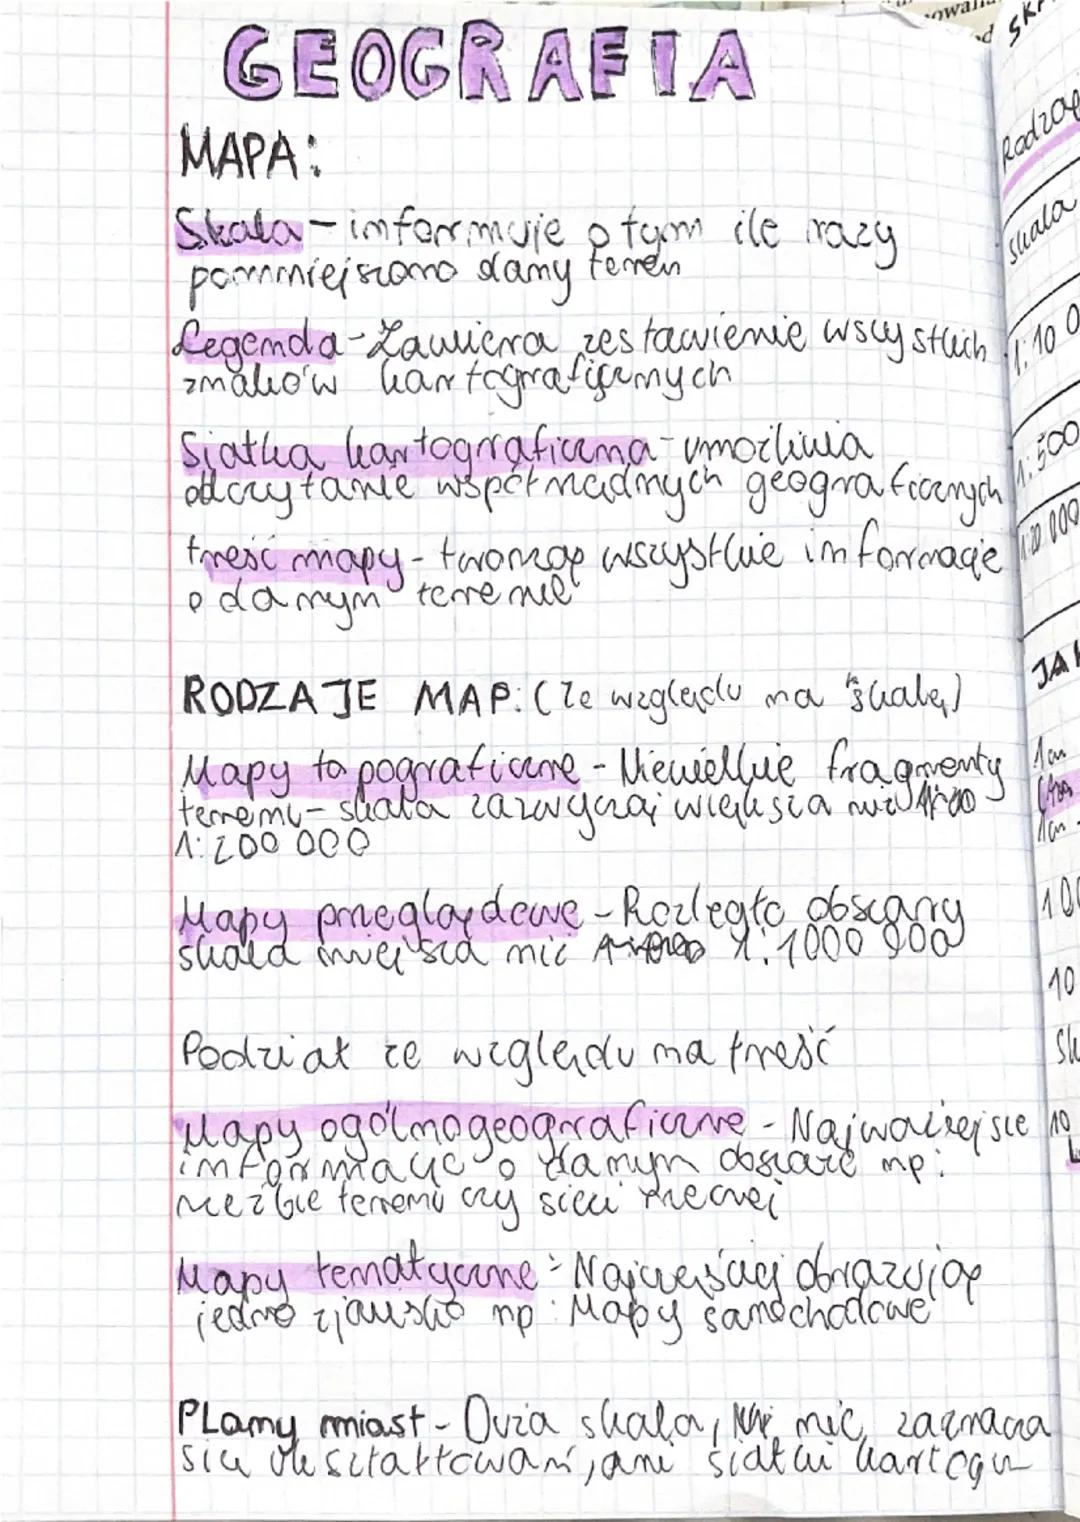 GEOGRAFIA
MAPA:
Skala - informuje o tym ile razy
pomniejszono damy teren
Legenda - Zawiera zestawienie wszystkich
znaków kartograficznych
Siatka kartograficzna - umożliwia
odczytanie współrzędnych geograficznych
treść mapy - tworzą wszystkie informacje
o danym terenie
RODZAJE MAP: (Ze względu na skalę)
Mapy topograficzne - Niewielkie fragmenty
terenu - skala zazwyczaj większa niż
1:200 000
Mapy przeglądowe - Rozległe obszary
skala mniejsza niż 1:1000 000
Podział ze względu na treść
Mapy ogólnogeograficzne - Najważniejsze
informacje o danym obszarze np:
rzeźbie terenu czy sieci rzecznej
Mapy tematyczne - Najczęściej obrazują
jedno zjawisko np: Mapy samochodowe
PLamy miast - Duża skala, nie zaznacza
się ukształtowań, ani siatki kartogr
Rodzaj
skala
1:10 0
1:500
1:20 000
JAK
1cm
1cm
10
10